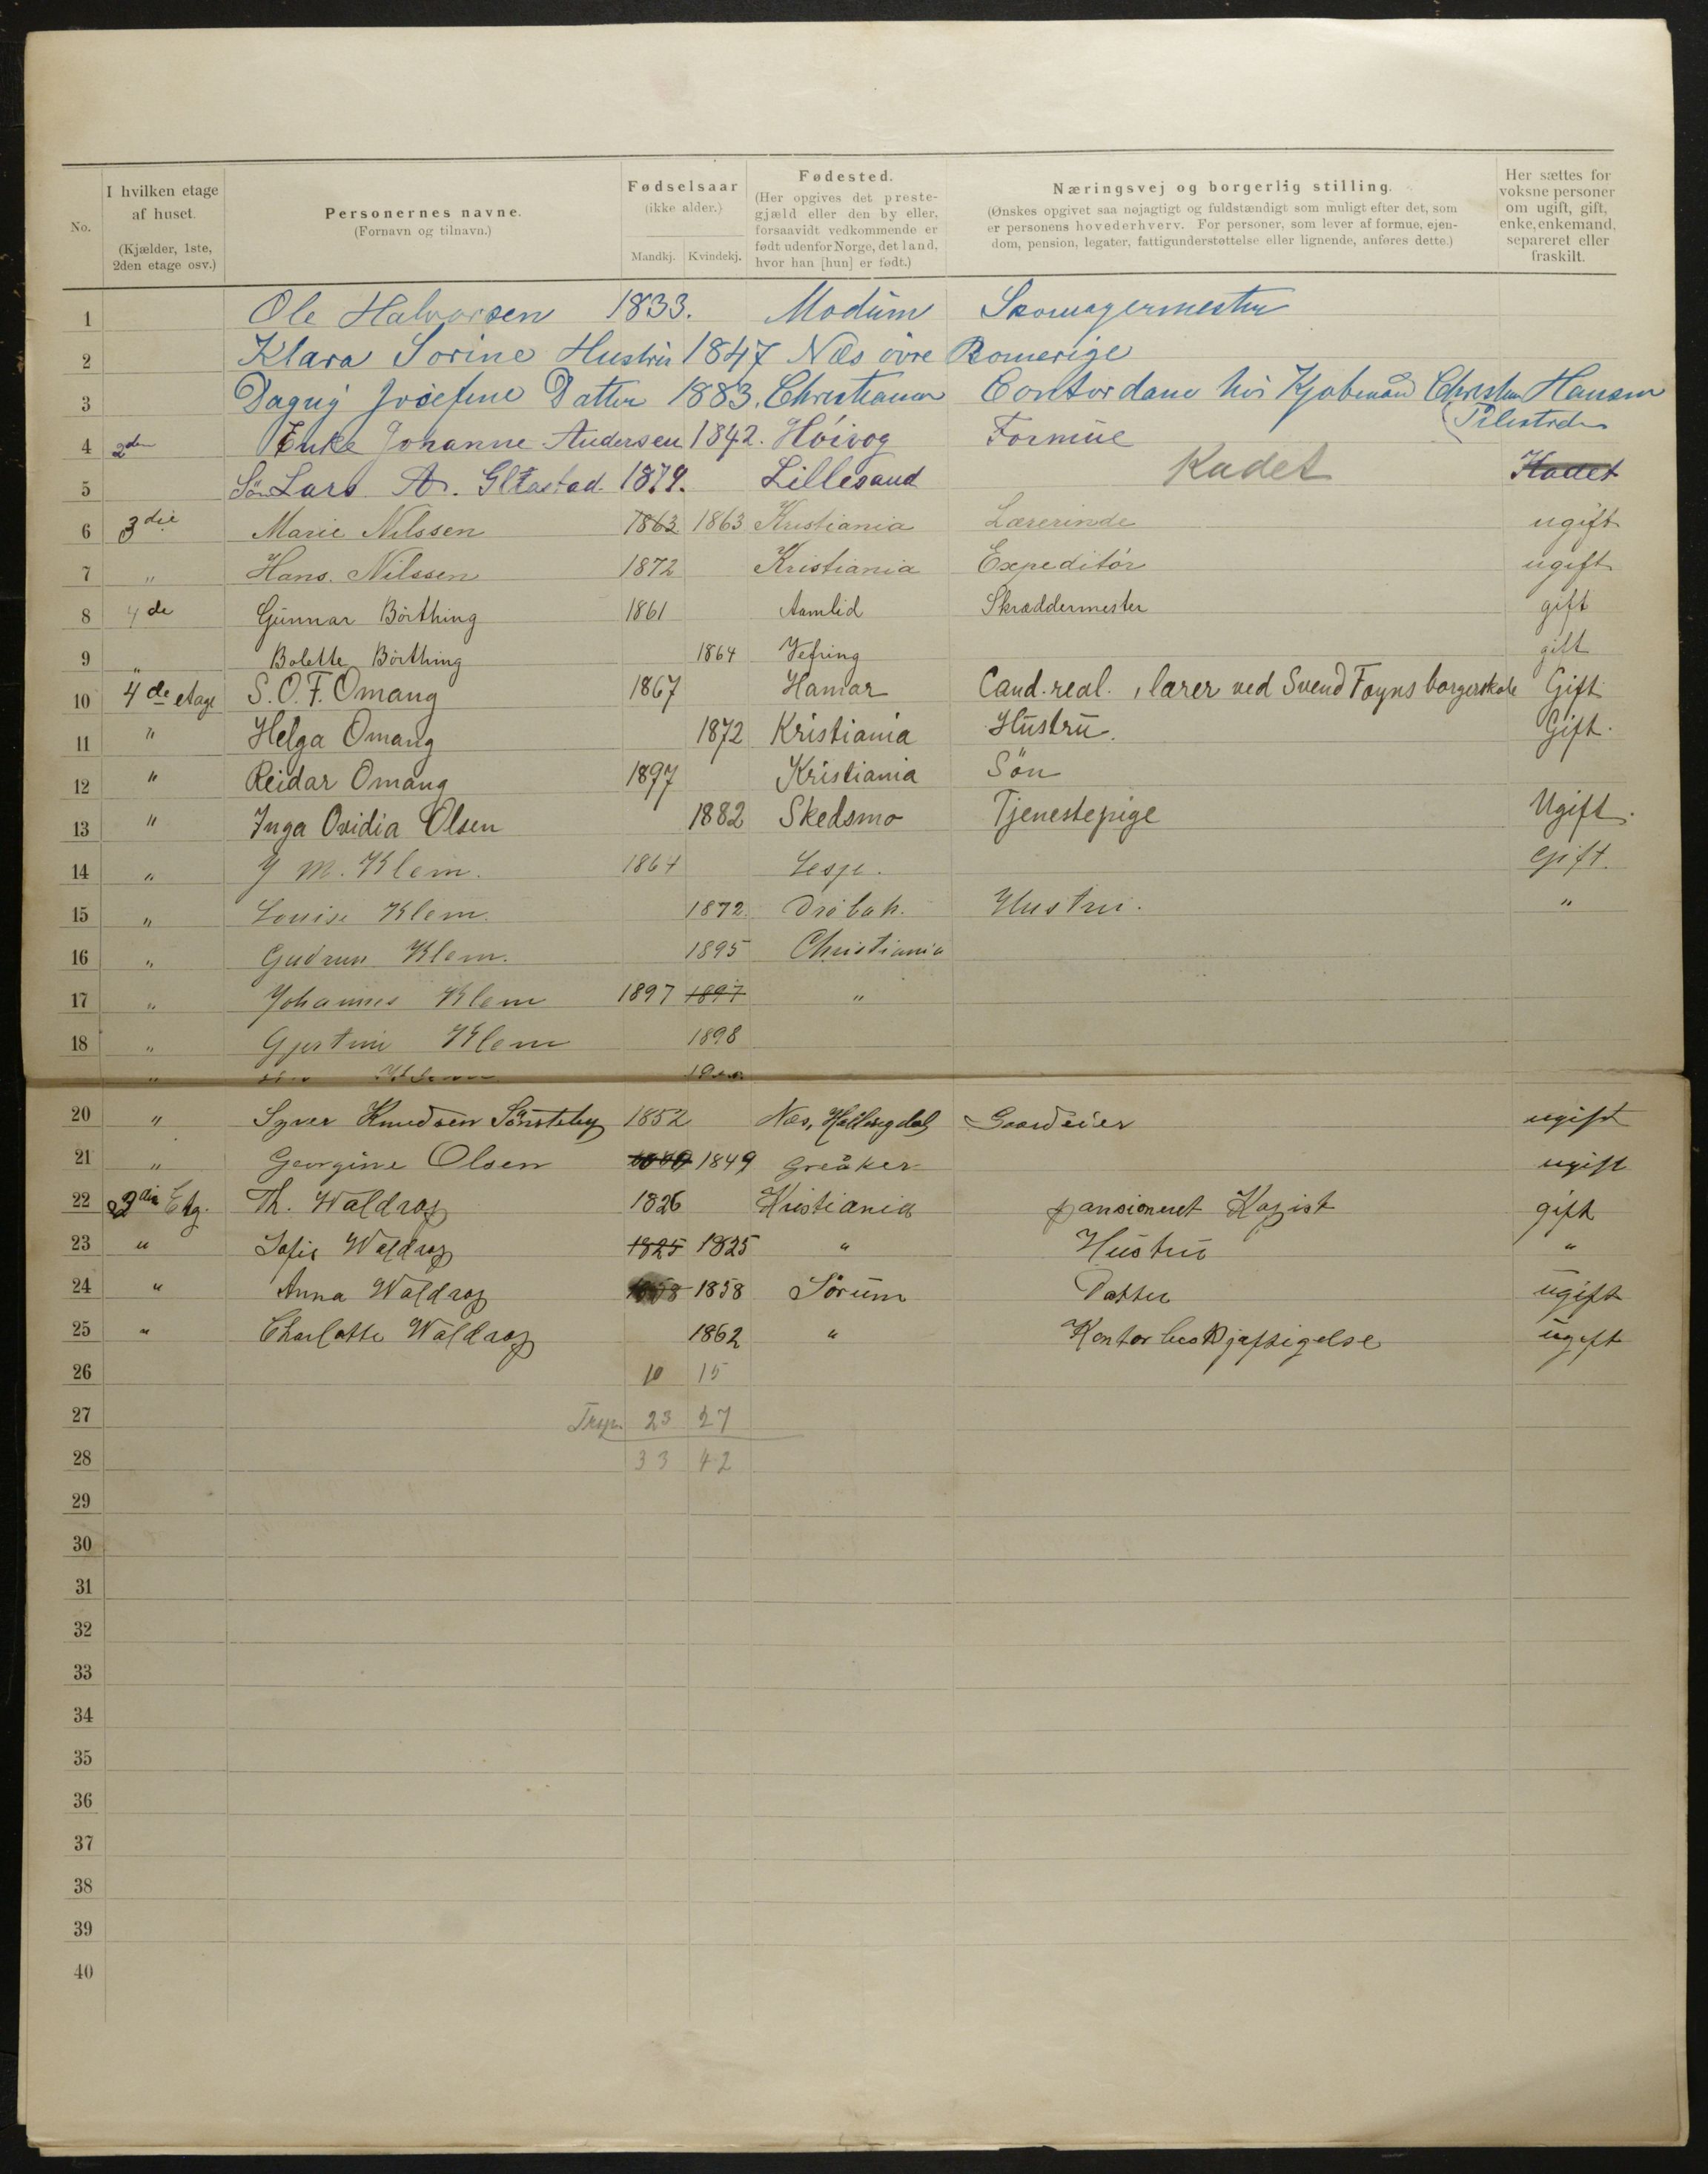 No.
I hvilken etage af huset. (Kjælder, 1ste, 2den etage osv.)
Personernes navne. (Fornavn og tilnavn.)
Fødselsaar (ikke alder.)
Mandkj. Kvindekj.
Fødested. (Her opgives det prestegjæld eller den by eller, forsaavidt vedkommende er født udenfor Norge, det land, hvor han [hun] er født.)
Næringsvej og borgerlig stilling. (Ønskes opgivet saa nøjagtigt og fuldstændigt som muligt efter det, som er personens hovederhverv. For personer, som lever af formue, ejendom, pension, legater, fattigunderstøttelse eller lignende, anføres dette.)
Her sættes for voksne personer om ugift, gift, enke, enkemand, separeret eller fraskilt.
1 Ole Halvorsen 1833. Modum Skomagermester
2 Klara Sorine Hustru 1847 Næs övre Romerige
3 Dagny Josefine Datter 1883. Christiania Contordame hos Kjøbmand Christian Hansen
4 2den Enke Johanne Andersen 1842. Höivog Formue
5 Sön Lars A. 1879. Lillesand Kadet Kadet
6 3die Marie Nilssen 1863 1863 Kristiania Lærerinde ugift
7 " Hans. Nilssen 1872 Kristiania Expeditör ugift
8 4de Gunnar Börthing 1861 Aamlid Skræddermester gift
9 " Bolette Börthing 1864 Vefring gift
10 4de etage S. O. F. Omang 1867 Hamar Cand. real., lærer ved Svend Foyns borgerskole Gift
11 " Helga Omang 1872 Kristiania Hustru. Gift.
12 " Reidar Omang 1897 Kristiania Sön
13 " Inga Ovidia Olsen 1882 Skedsmo Tjenestepige Ugift.
14 " J M. Klem. 1864 Lesje. Gift.
15 " Louise Klem. 1872 Dröbak. Hustru. "
16 " Gudrun Klem. 1895 Christiania
17 " Johannes Klem 1897 1897 "
18 " Klem 1898
"
20 " Syver Knudsen Sönsteby 1852 Næs, Hallingdal Gaardeier ugift
21 " Georgine Olsen 1849 1849 Greåker ugift
22 3die Etg. Th. Waldrop 1826 Kristiania pansioneret Kopist gift
23 " Sofie Waldrop 1825 1825 " Hustru "
24 " Anna Waldrop 1858 1858 Sörum Datter ugift
25 " Charlotte Waldrop 1862 " Kontorbeskjæftigelse ugift
26 10 15
27 23 27
28 33 42
29
30
31
32
33
34
35
36
37
38
39
40